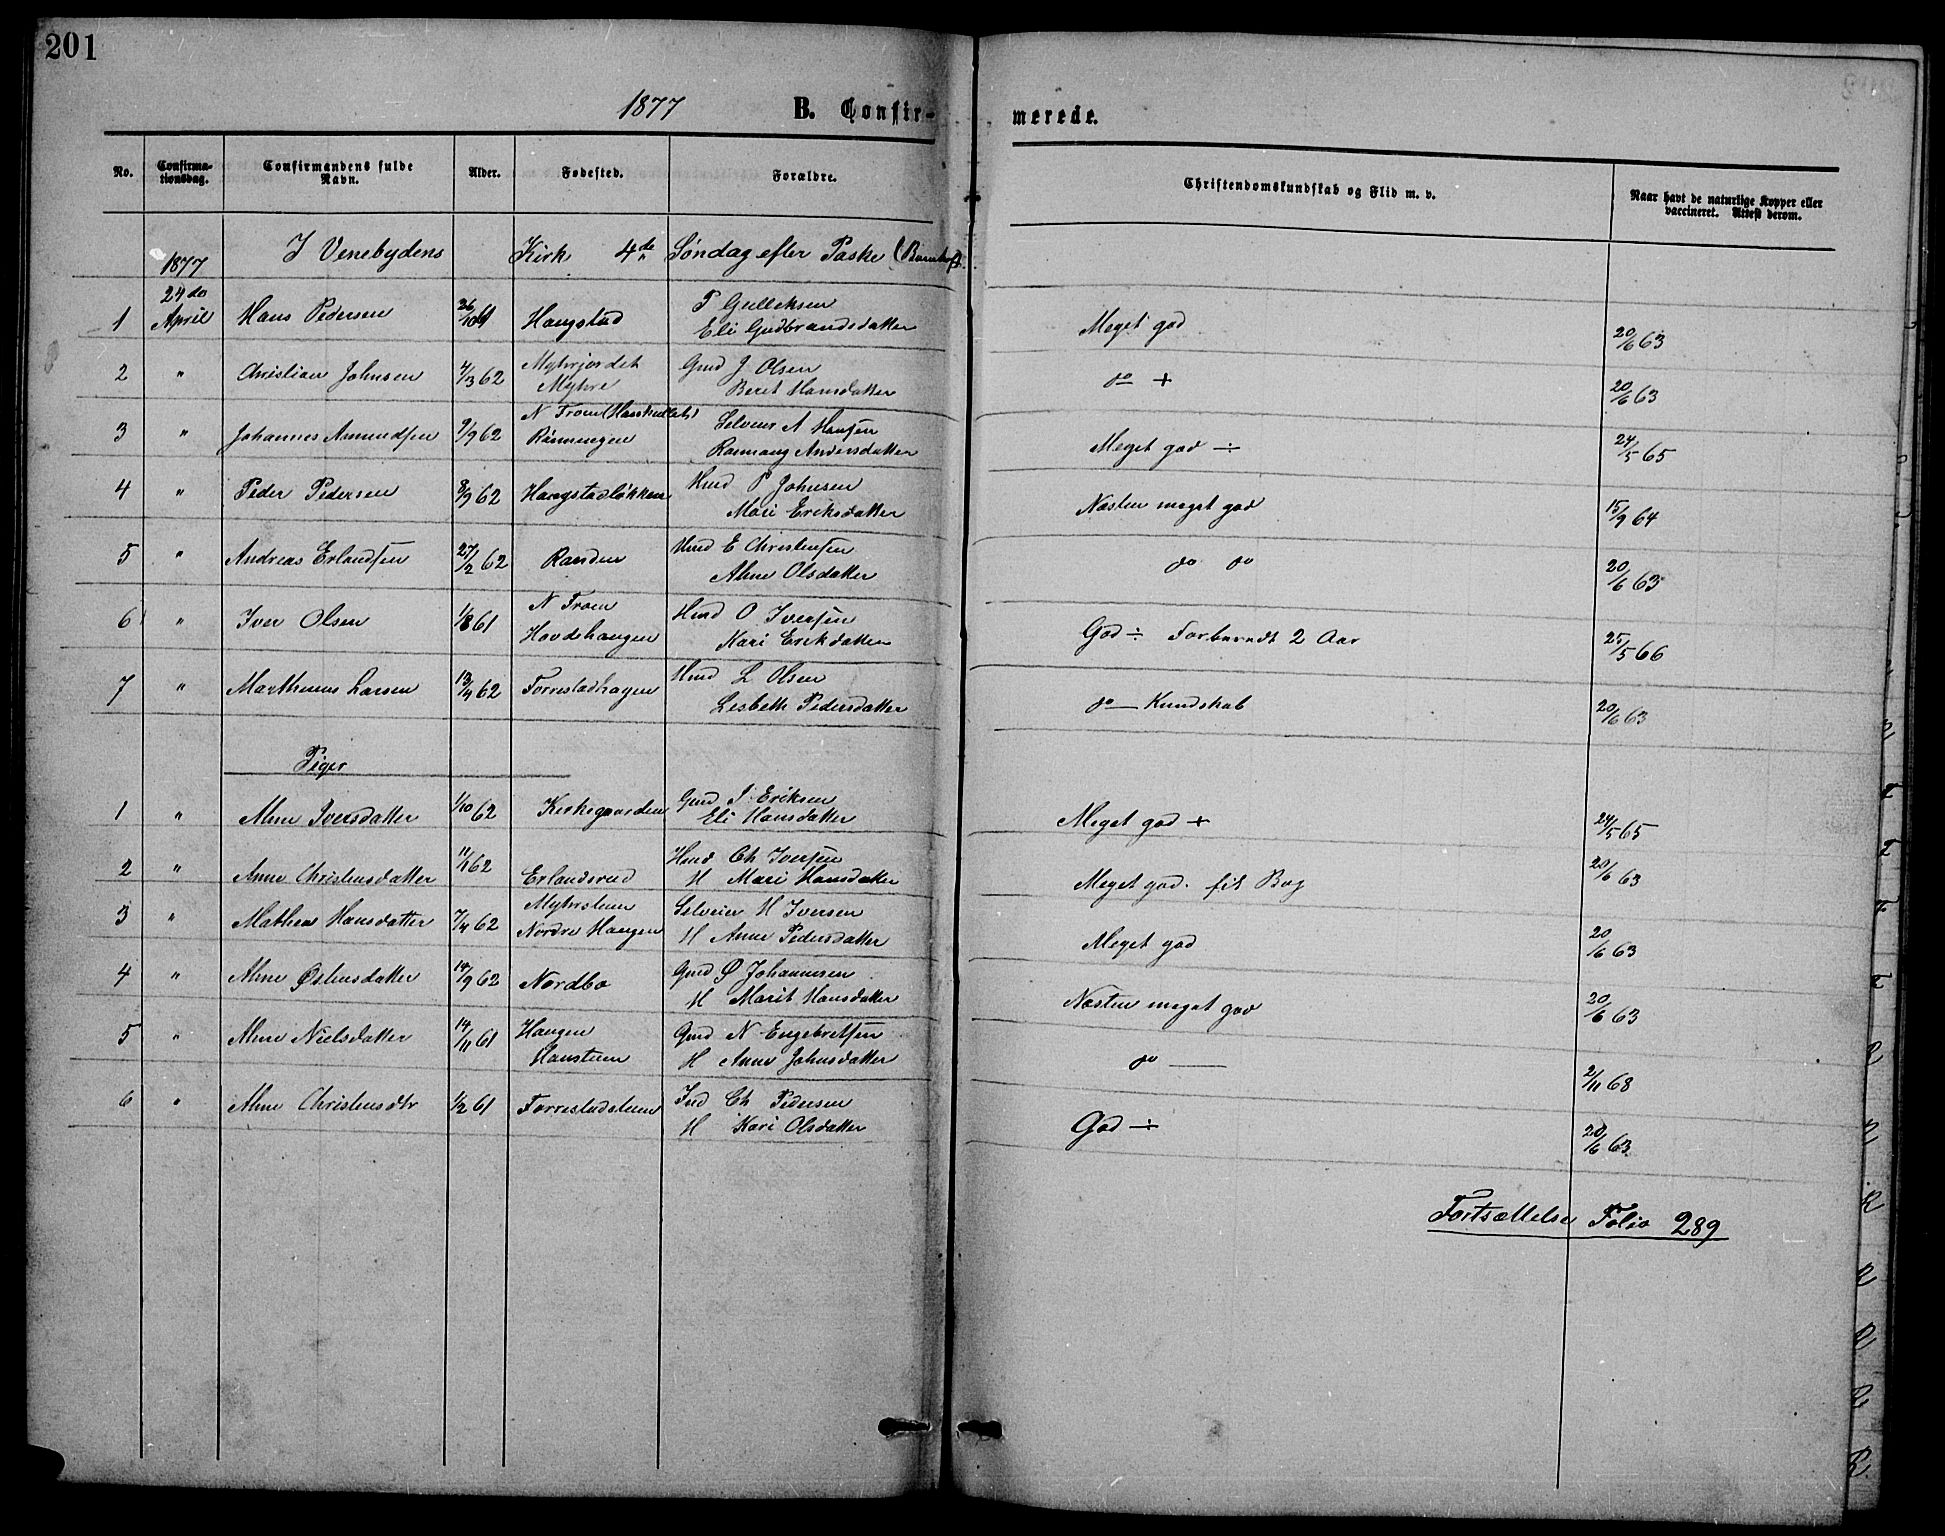 201
1877 B. Confir- merede.
No. Confirma-tionsdag. Confirmandens fulde Navn. Alder. Fødested. Forældre. Christendomskundskab og Flid m. v. Naar havt de naturlige Kopper eller vaccineret. Attest derom.
1877 I Venebygdens Kirke 4de Søndag efter Paaske
24de
April
1 Hans Pedersen 26/10 61 Haugstad P Gulleksen
Eli Gudbrandsdatter Meget god 20/6 63
2 " Christian Johnsen 4/3 62 Myhrjordet
Myhre Gmd J. Olsen
Beret Hansdatter do + 20/6 63
3 " Johannes Amundsen 9/9 62 N Trøen
Rønningen Selveier A Hansen
Rannaug Andersdatter Meget god ÷ 24/5 65
4 " Peder Pedersen 8/9 62 Haugstadløkken Hmd P Johnsen
Mari Eriksdatter Næsten meget god 15/9 64
5 " Andreas Erlandsen 27/2 62 Randen Hmd E Christensen
Ahne Olsdatter do do 20/6 63
6 " Iver Olsen 1/8 61 N Trøen
Hovdehaugen Hmd O Iversen
Kari Eriksdatter God ÷ Forberedt 2 Aar 25/5 66
7 " Marthinus Larsen 13/4 62 Forrestadhagen Hmd L Olsen
Lisbeth Pedersdatter do — Kundskab 20/6 63
Piger
1 " Ahne Iversdatter 1/10 62 Kirkegaarden Gmd I Eriksen
Eli Hansdatter Meget god + 24/5 65
2 " Anne Christensdatter 11/1 62 Erlandsrud Hmd Ch Iversen
H Mari Hansdatter Meget god. fit Bog 20/6 63
3 " Mathea Hansdatter 7/4 62 Myhrstuen
Nordre Haugen Selveier H Iversen
H Anne Pedersdatter Meget god 20/6 63
4 " Ahne Østensdatter 14/9 62 Nordbo Gmd Ø Johannesen
H Marit Hansdatter Næsten meget god 20/6 63
5 " Ahne Nielsdatter 14/11 61 Haugen
Gmd N Engebretsen
H Anne Johnsdatter do — 2/11 68
6 " Ahne Christensdtr 1/2 61 Forrestadstuen Ind Ch Pedersen
H Kari Olsdatter God ÷ 20/6 63
Fortsættelse Folio 289